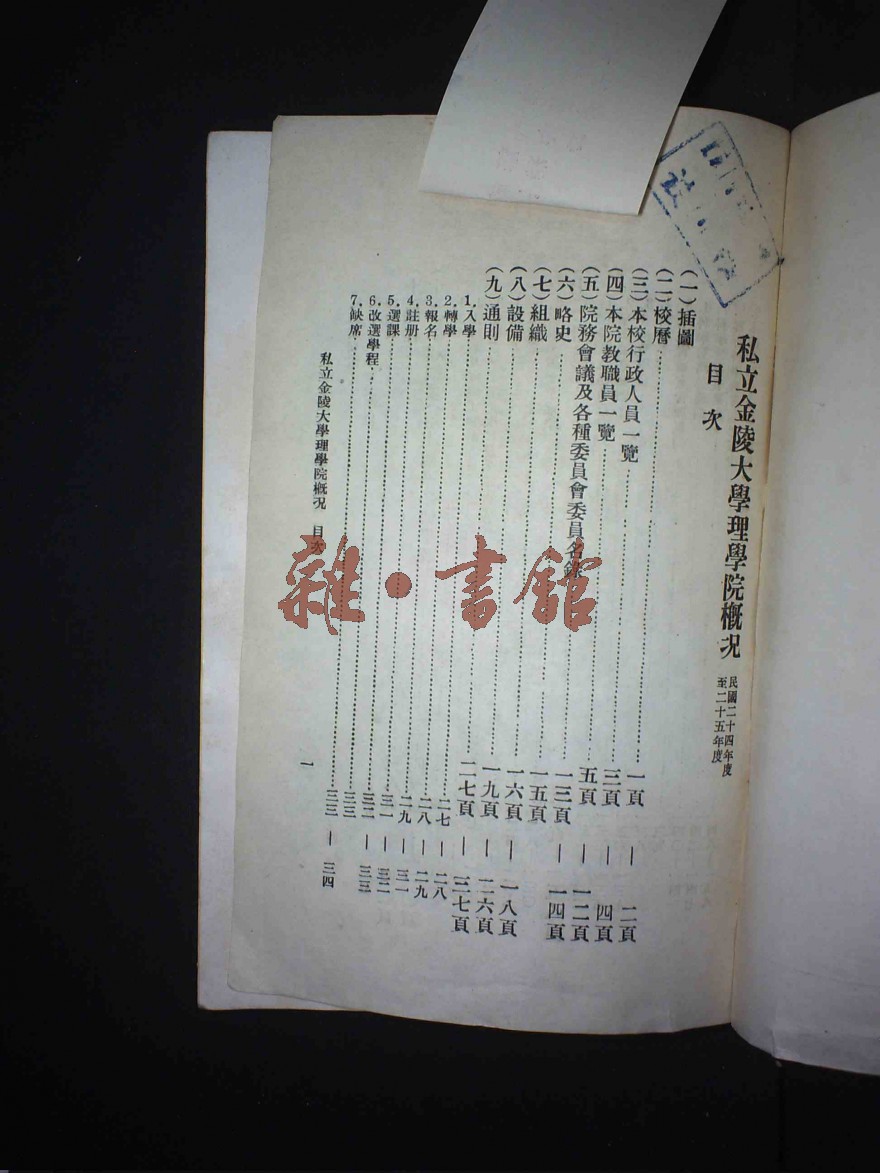 私立金陵大學理學院概况 民國二十四年度至二十五年度
目次
(一)插圖
(二)校曆……一頁—二頁
(三)本校行政人員一覽……三頁—四頁
(四)本院教職員一覽……五頁—一二頁
(五)院務會議及各種委員會委員名錄……一三頁—一四頁
(六)略史……一五頁
(七)組織……一六頁—一八頁
(八)設備……一九頁—二六頁
(九)通則……二七頁—三七頁
1.入學……二七—二八
2.轉學……二八—二九
3.報名……二九—三一
4.註册……三一—三二
5.選課……三二—三三
6.改選學程……三三
7.缺席……三三—三四
私立金陵大學理學院概况 目次 一
雜·書館